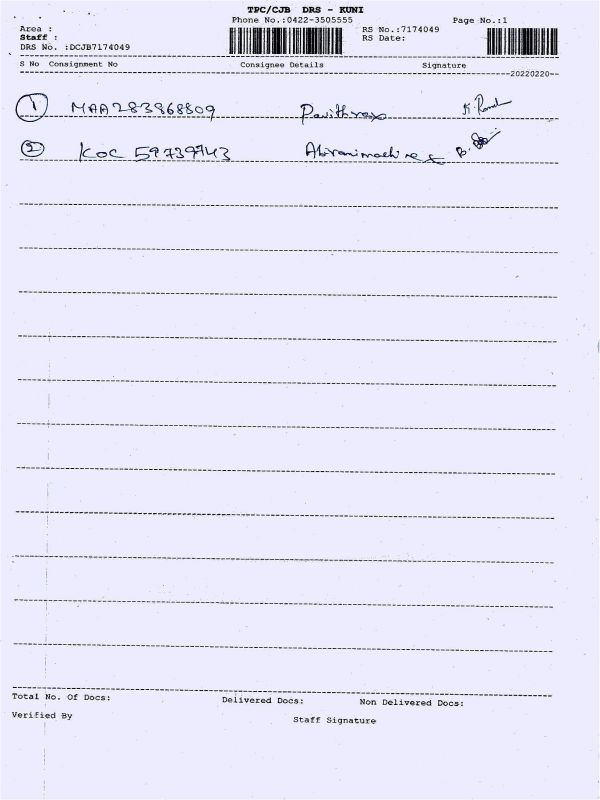 TPC/CJB DRS - KUNI
Phone No.:0422-3505555 Page No.:1
Area :
Staff :
DRS No. :DCJB7174049
RS No.:7174049
RS Date:
S No Consignment No Consignee Details Signature
20220220
1 MAA283868809 Pavithra
2 KOC 59739743
Total No. Of Docs: Delivered Docs: Non Delivered Docs:
Verified By Staff Signature